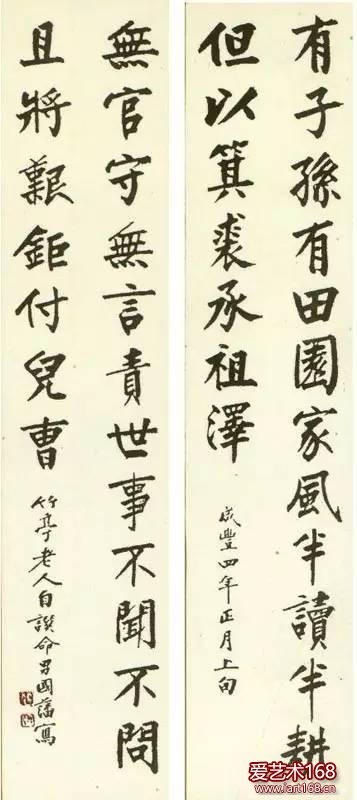 有子孫有田園家風半讀半耕
但以箕裘承祖澤
咸豐四年正月上旬
無官守無言責世事不聞不問
且將艱鉅付兒曹
竹亭老人自譔命男國藩寫
爱艺术168
www.iart168.com